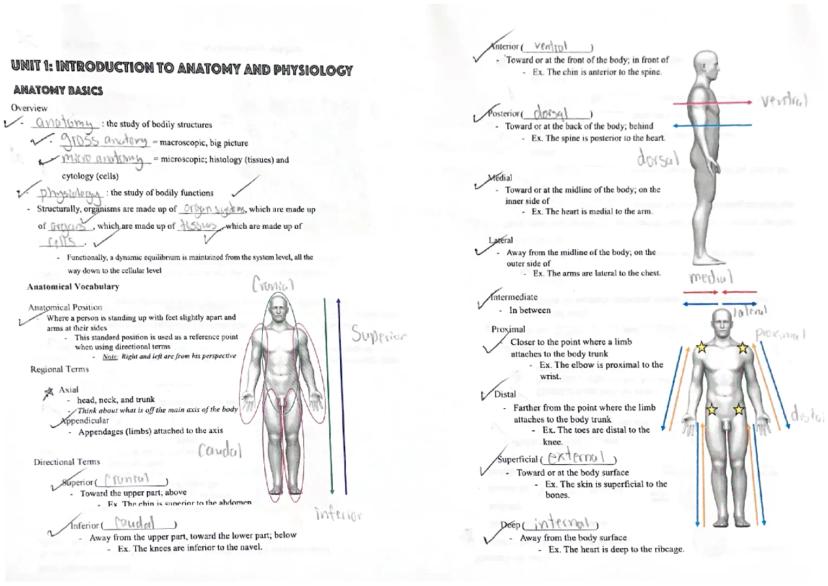 UNIT 1: INTRODUCTION TO ANATOMY AND PHYSIOLOGY
ANATOMY BASICS
Overview
- anatomy : the study of bodily structures
- gross anatomy = macroscopic, big picture
- micro anatomy = microscopic; histology (tissues) and
cytology (cells)
- physiology : the study of bodily functions
- Structurally, organisms are made up of organ systems, which are made up
of organs, which are made up of tissues, which are made up of
cells.
- Functionally, a dynamic equilibrium is maintained from the system level, all the
way down to the cellular level
Anatomical Vocabulary
Anatomical Position
Where a person is standing up with feet slightly apart and
arms at their sides
- This standard position is used as a reference point
when using directional terms
- Note: Right and left are from his perspective
Regional Terms
Axial
- head, neck, and trunk
- Think about what is off the main axis of the body
Appendicular
- Appendages (limbs) attached to the axis
Directional Terms
Superior ( Cranial )
- Toward the upper part; above
- Ex. The chin is superior to the abdomen
Inferior ( Caudal )
- Away from the upper part, toward the lower part; below
- Ex. The knees are inferior to the navel.
Cranial
Superior
Caudal
inferior
Anterior ( ventral )
- Toward or at the front of the body; in front of
- Ex. The chin is anterior to the spine.
Posterior ( dorsal )
- Toward or at the back of the body; behind
- Ex. The spine is posterior to the heart.
Medial
- Toward or at the midline of the body; on the
inner side of
- Ex. The heart is medial to the arm.
Lateral
- Away from the midline of the body; on the
outer side of
- Ex. The arms are lateral to the chest.
Intermediate
- In between
Proximal
- Closer to the point where a limb
attaches to the body trunk
- Ex. The elbow is proximal to the
wrist.
Distal
- Farther from the point where the limb
attaches to the body trunk
- Ex. The toes are distal to the
knee.
Superficial ( external )
- Toward or at the body surface
- Ex. The skin is superficial to the
bones.
Deep ( internal )
- Away from the body surface
- Ex. The heart is deep to the ribcage.
ventral
dorsal
medial
lateral
proximal
distal